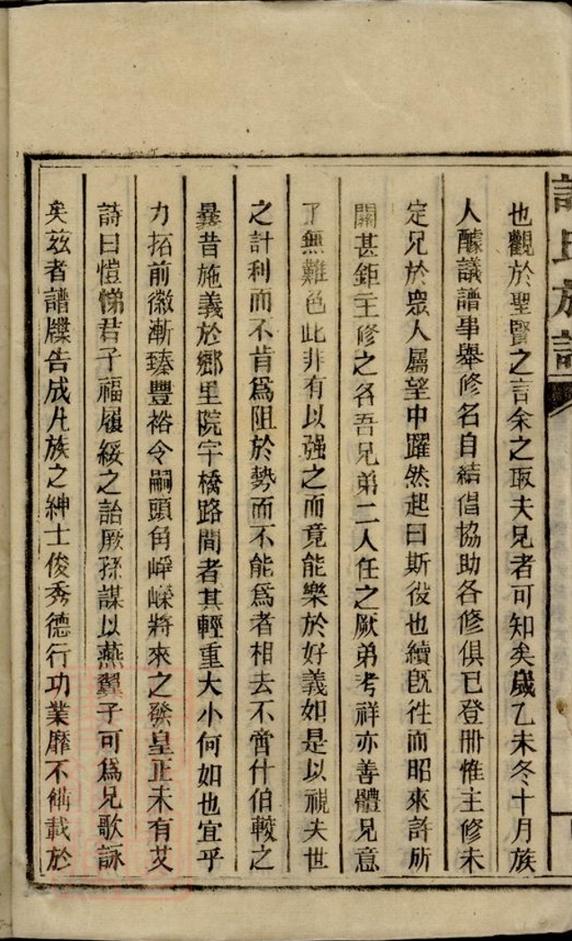 許氏族譜
也觀於聖賢之言余之取夫兄者可知矣歲乙未冬十月族
人醵議譜事舉修名自結倡協助各修俱已登冊惟主修未
定兄於眾人屬望中躍然起曰斯役也續旣徃而昭來許所
關甚鉅主修之各吾兄弟二人任之厥弟考祥亦善體兄意
了無難色此非有以强之而竟能樂於好義如是以視夫世
之計利而不肯爲阻於勢而不能爲者相去不啻什伯較之
曩昔施義於鄉里院宇橋路間者其輕重大小何如也宜乎
力拓前徽漸臻豐裕令嗣頭角崢嶸將來之發皇正未有艾
詩曰愷悌君子福履綏之詒厥孫謀以燕翼子可爲兄歌詠
矣茲者譜牒告成凡族之紳士俊秀德行功業靡不備載於